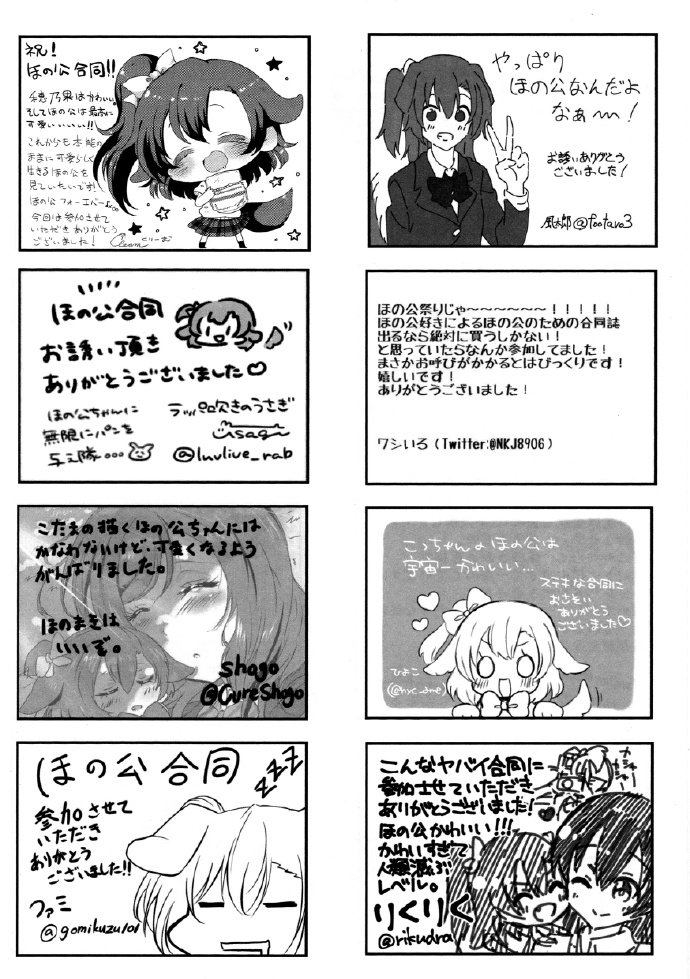 祝!
ほの公合同!!
穂乃果はかわいい。
そしてほの公は最高に
可愛いいいい!!
これからも本能の
ままに可愛らしく
生きるほの公を
見ていたいです!
ほの公フォーエバー
今回は参加させて
いただきありがとう
ございました!
やっぱり
ほの公なんだよ
なぁ〜!
お誘いありがとう
ございました!
風太郎@footaro3
ほの公合同
お誘い頂き
ありがとうございました♡
ほの公ちゃんに
無限にパンを
与え隊…
ラッパ吹きのうさぎ
usagi
@luvlive_rab
ほの公祭りじゃ〜〜〜〜〜〜〜!!!!!
ほの公好きによるほの公のための合同誌
出るなら絶対に買うしかない!
と思っていたらなんか参加してました!
まさかお呼びがかかるとはびっくりです!
嬉しいです!
ありがとうございました!
ワシいろ(Twitter:@NKJ8906)
こたまの描くほの公ちゃんには
かなわないけど、可愛くなるよう
がんばりました。
ほのまきは
いいぞ。
shogo
@CureShogo
こっちゃんのほの公は
宇宙一かわいい…
ステキな合同に
おさそい
ありがとう
ございました♡
ひよこ
ほの公合同
zzz
参加させて
いただき
ありがとう
ございました!!
ファミ
@gomikuzu101
こんなヤバイ合同に
参加させていただき
ありがとうございました!
ほの公かわいい!!!
かわいすぎて
人類滅ぶ
レベル。
りくりく
@rikudra